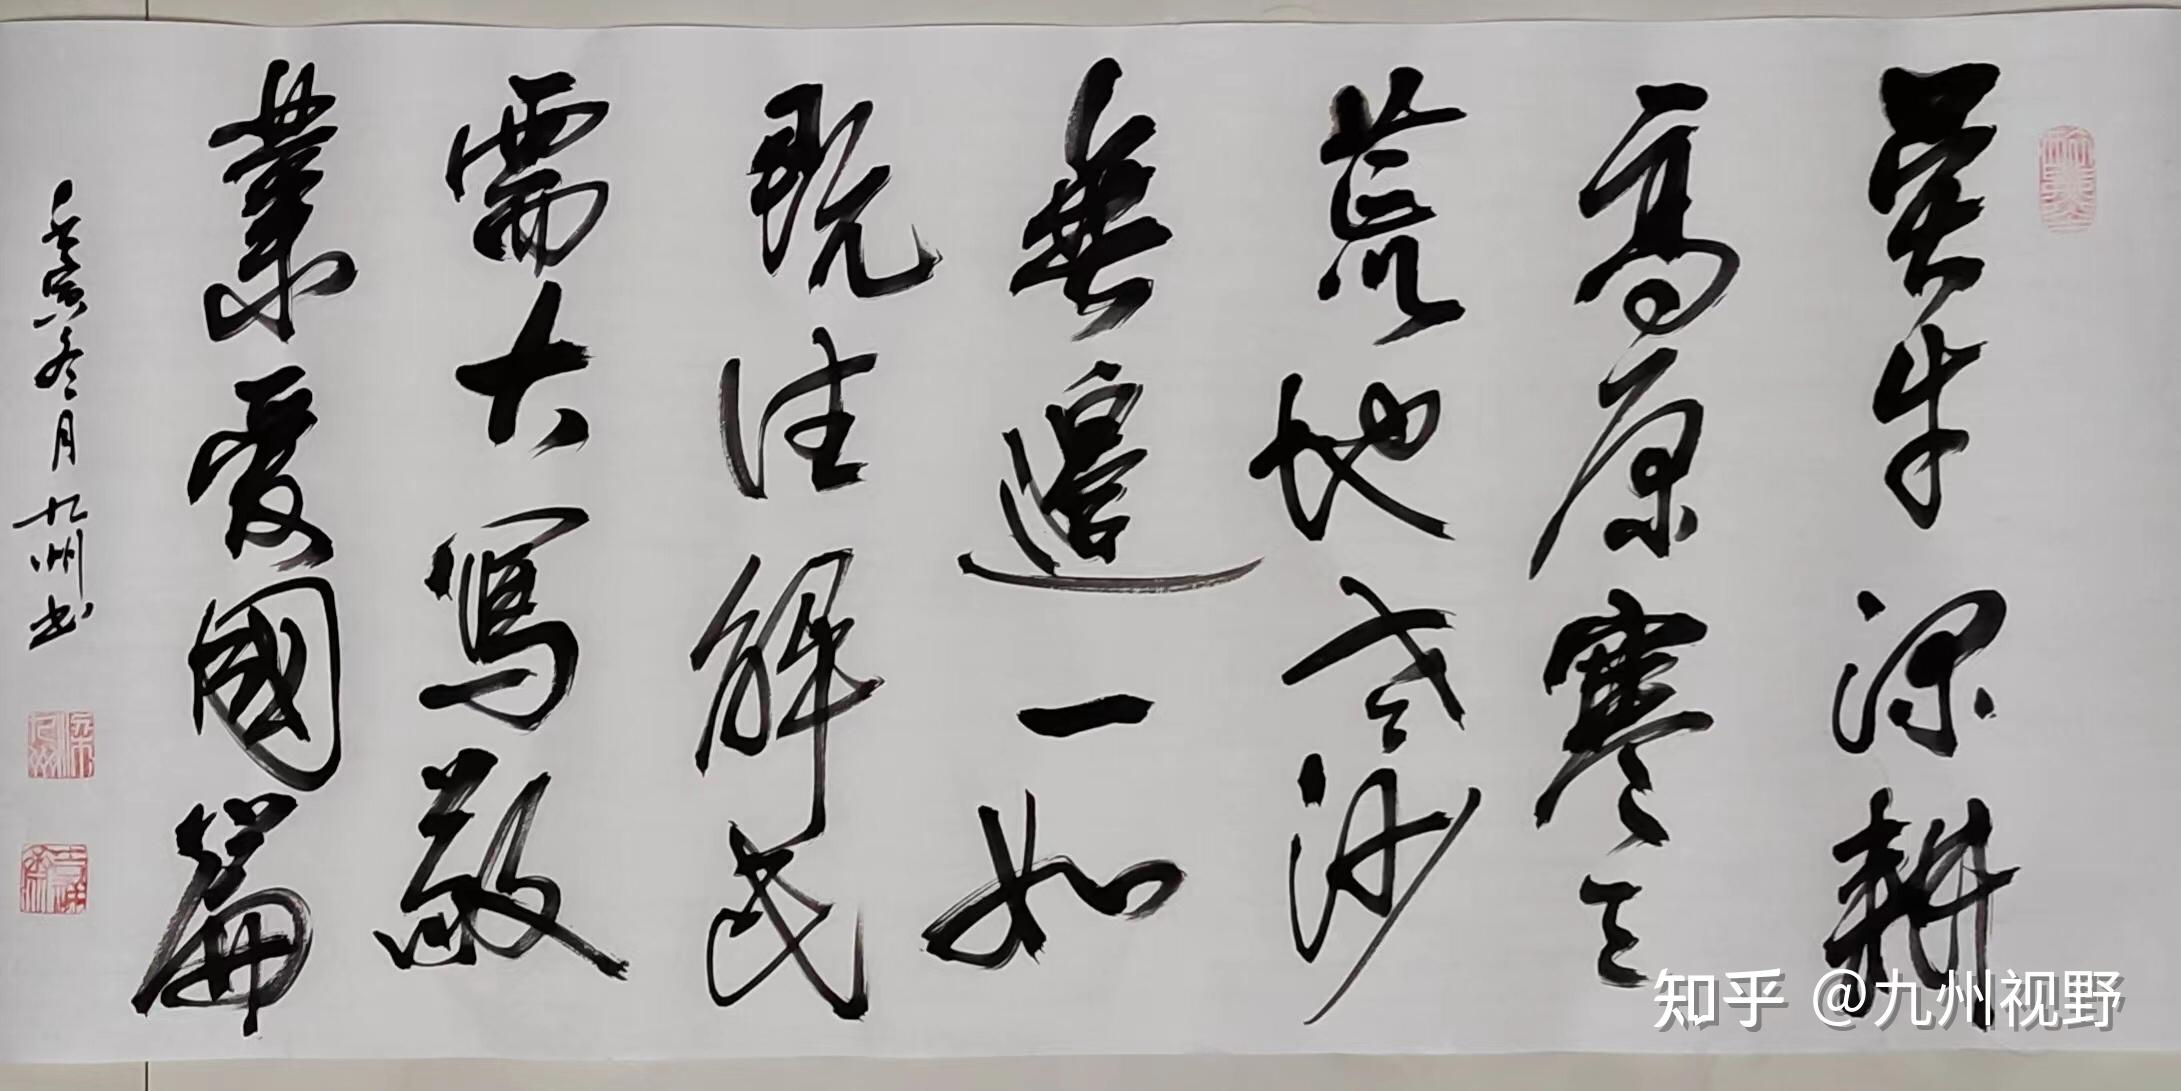 吴牛深耕
高原寒天
荒地老沙
無邊一如
既往解民
需大寫敬
業愛國篇
壬寅冬月九州书
知乎 @九州视野